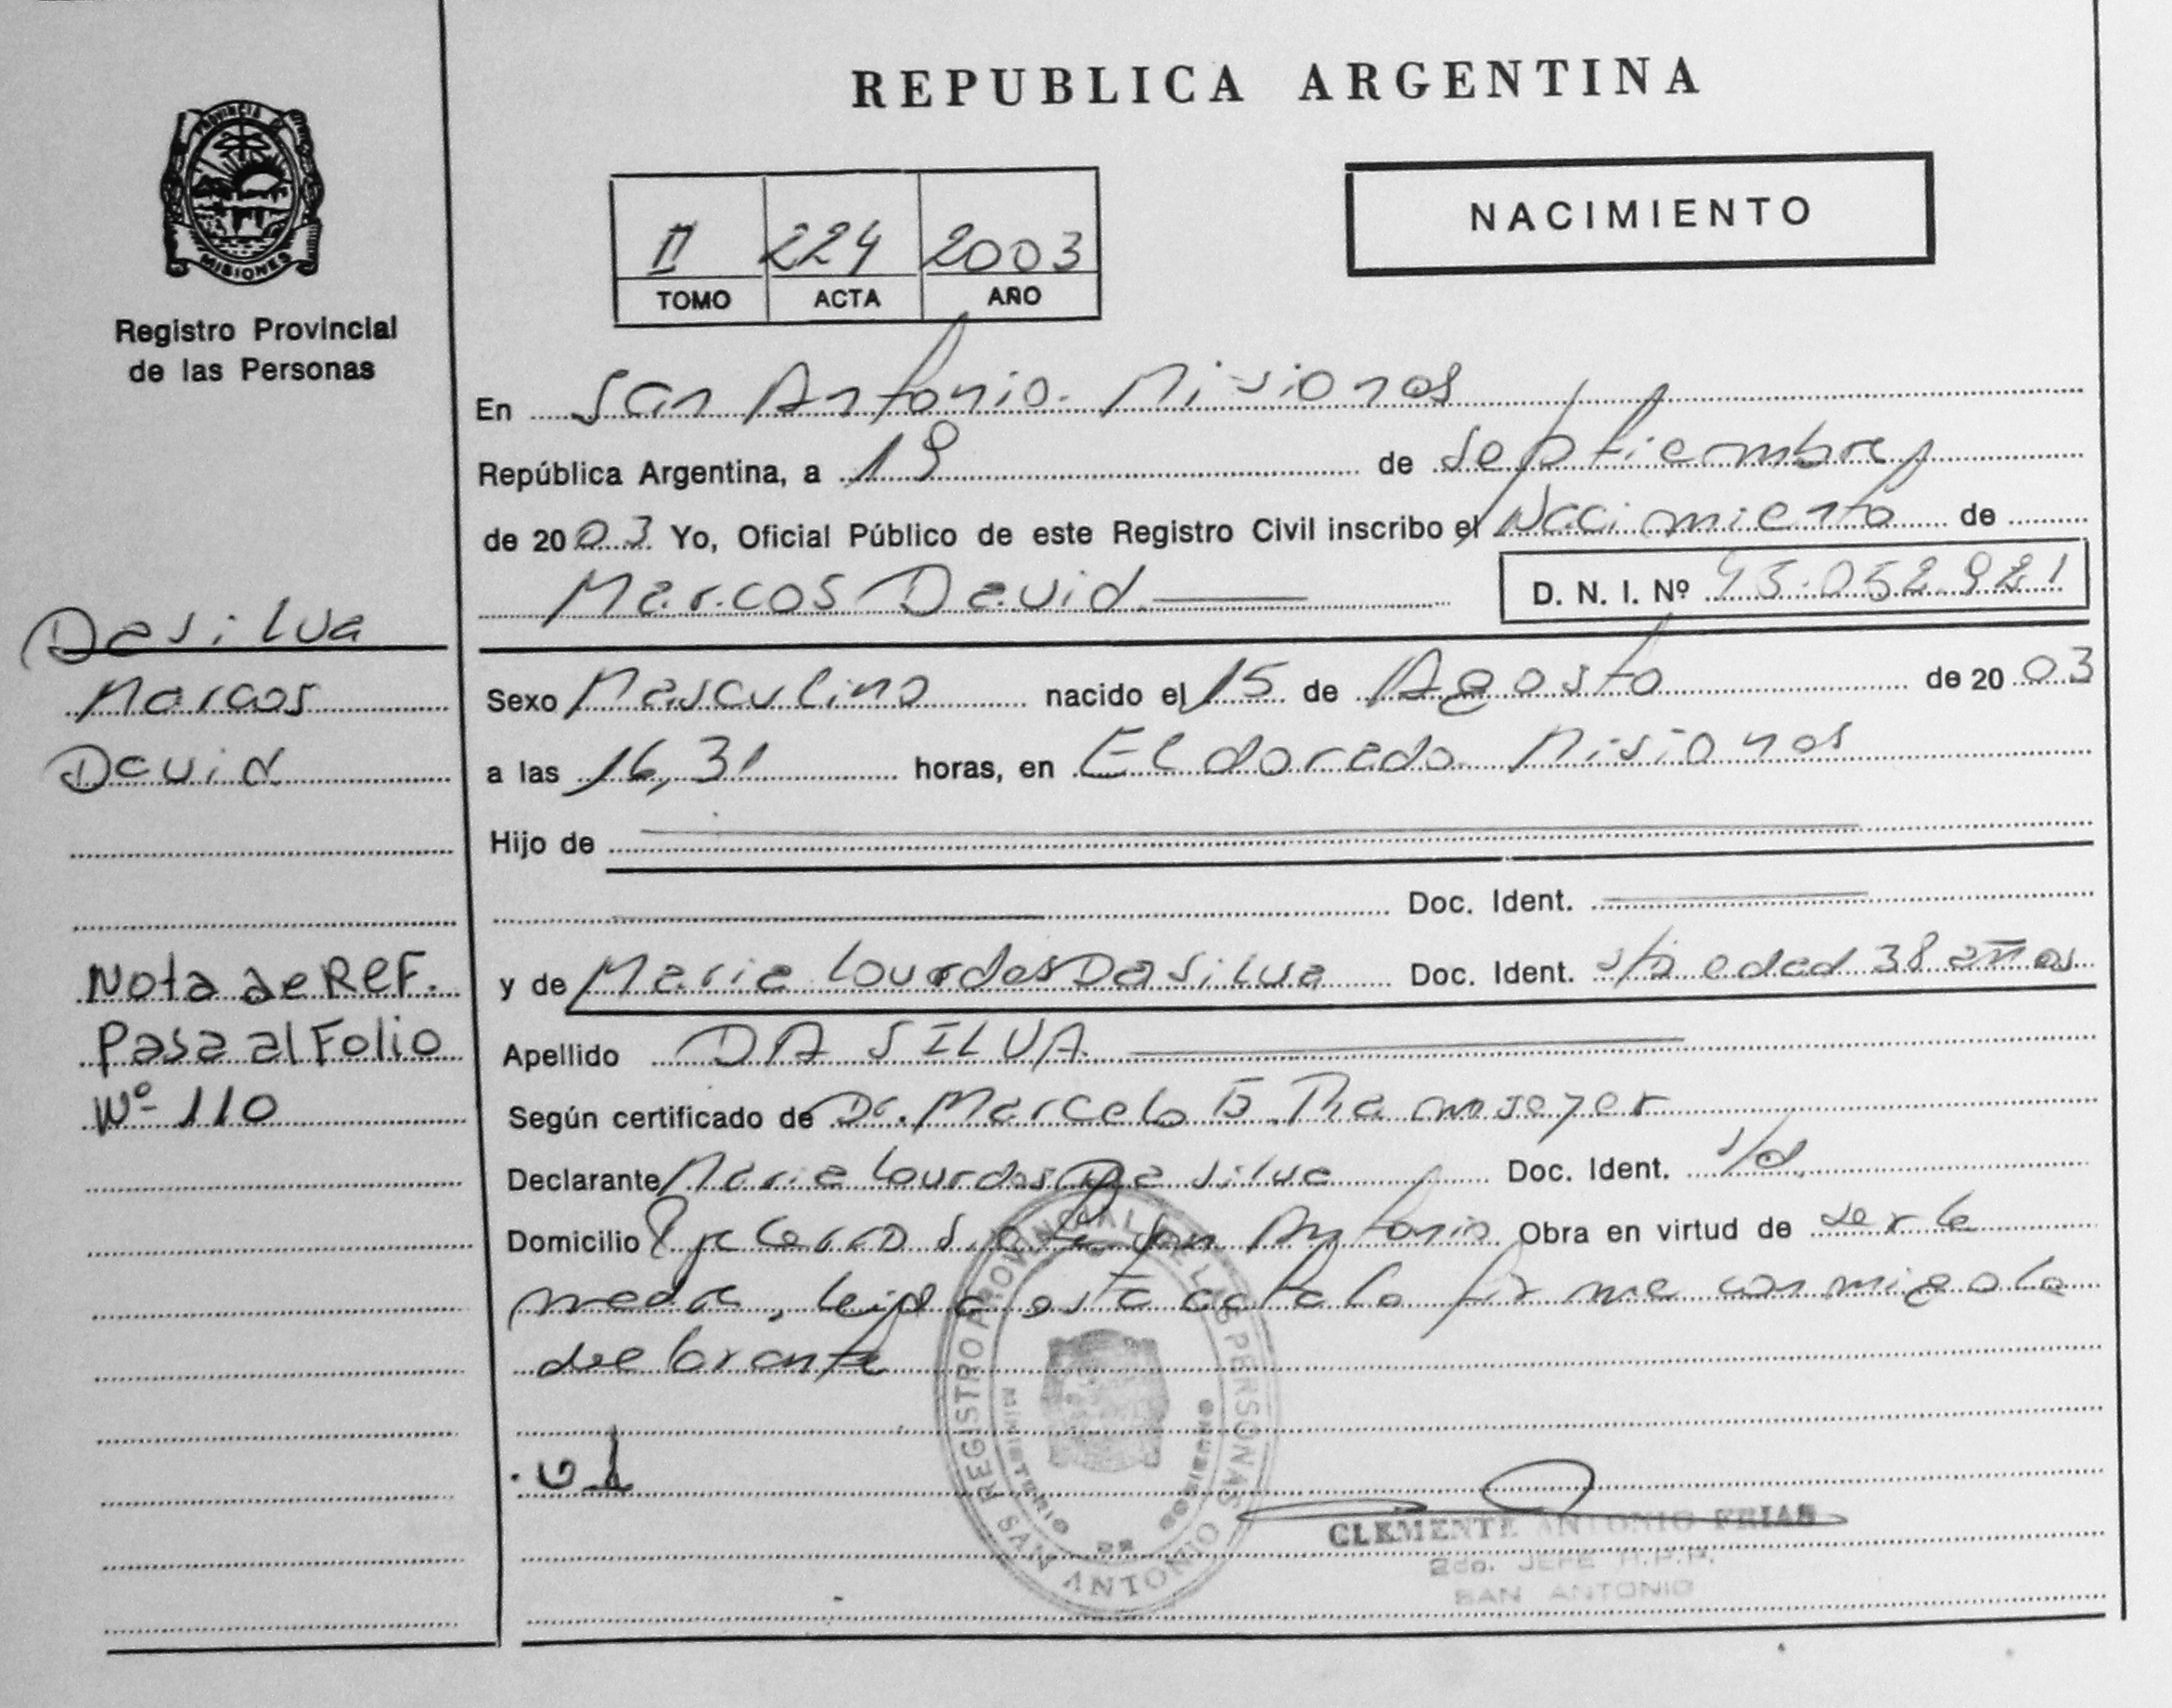 REPUBLICA ARGENTINA
PROVINCIA DE MISIONES
Registro Provincial
de las Personas
NACIMIENTO
II 224 2003
TOMO ACTA AÑO
En San Antonio. Misiones
República Argentina, a 19 de septiembre
de 2003 Yo, Oficial Público de este Registro Civil inscribo el Nacimiento de
Marcos David
D. N. I. Nº 45.052.921
Dasilva
Marcos
David
Sexo Masculino nacido el 15 de Agosto de 2003
a las 16,31 horas, en Eldorado Misiones
Hijo de
Doc. Ident.
y de Maria Lourdes Da Silva Doc. Ident. edad 38 años
Nota de REF.
Pasa al Folio
Nº 110
Apellido DA SILVA
Según certificado de Dr. Marcelo
Declarante Maria Lourdes Da Silva Doc. Ident. s/d.
Domicilio San Antonio Obra en virtud de ser la
madre, leida esta acta la firma conmigo la
declarante
REGISTRO PROVINCIAL DE LAS PERSONAS
MINISTERIO DE GOBIERNO
SAN ANTONIO
CLEMENTE ANTONIO FRIAS
2do. JEFE R.P.P.
SAN ANTONIO